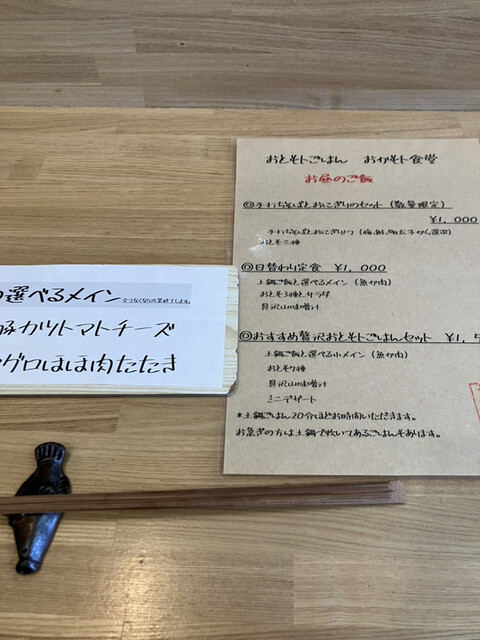 おとそトごはん おかそト食堂
お昼のご飯
◎手打ちそばとおにぎりのセット（数量限定）
¥1,000
手打ちそばとおにぎり1つ（梅、鮭、明太子から選択）
おとそ三種
◎日替わり定食 ¥1,000
土鍋ご飯と選べるメイン（魚か肉）
おとそ3種とサラダ
具沢山味噌汁
◎おすすめ贅沢おとそトごはんセット ¥1,5
土鍋ご飯と選べる小メイン（魚か肉）
おとそ7種
具沢山味噌汁
ミニデザート
*土鍋ごはん20分ほどお時間いただきます。
お急ぎの方は土鍋で炊いてあるごはんもあります。
選べるメイン
豚カツトマトチーズ
グロほほ肉たたき